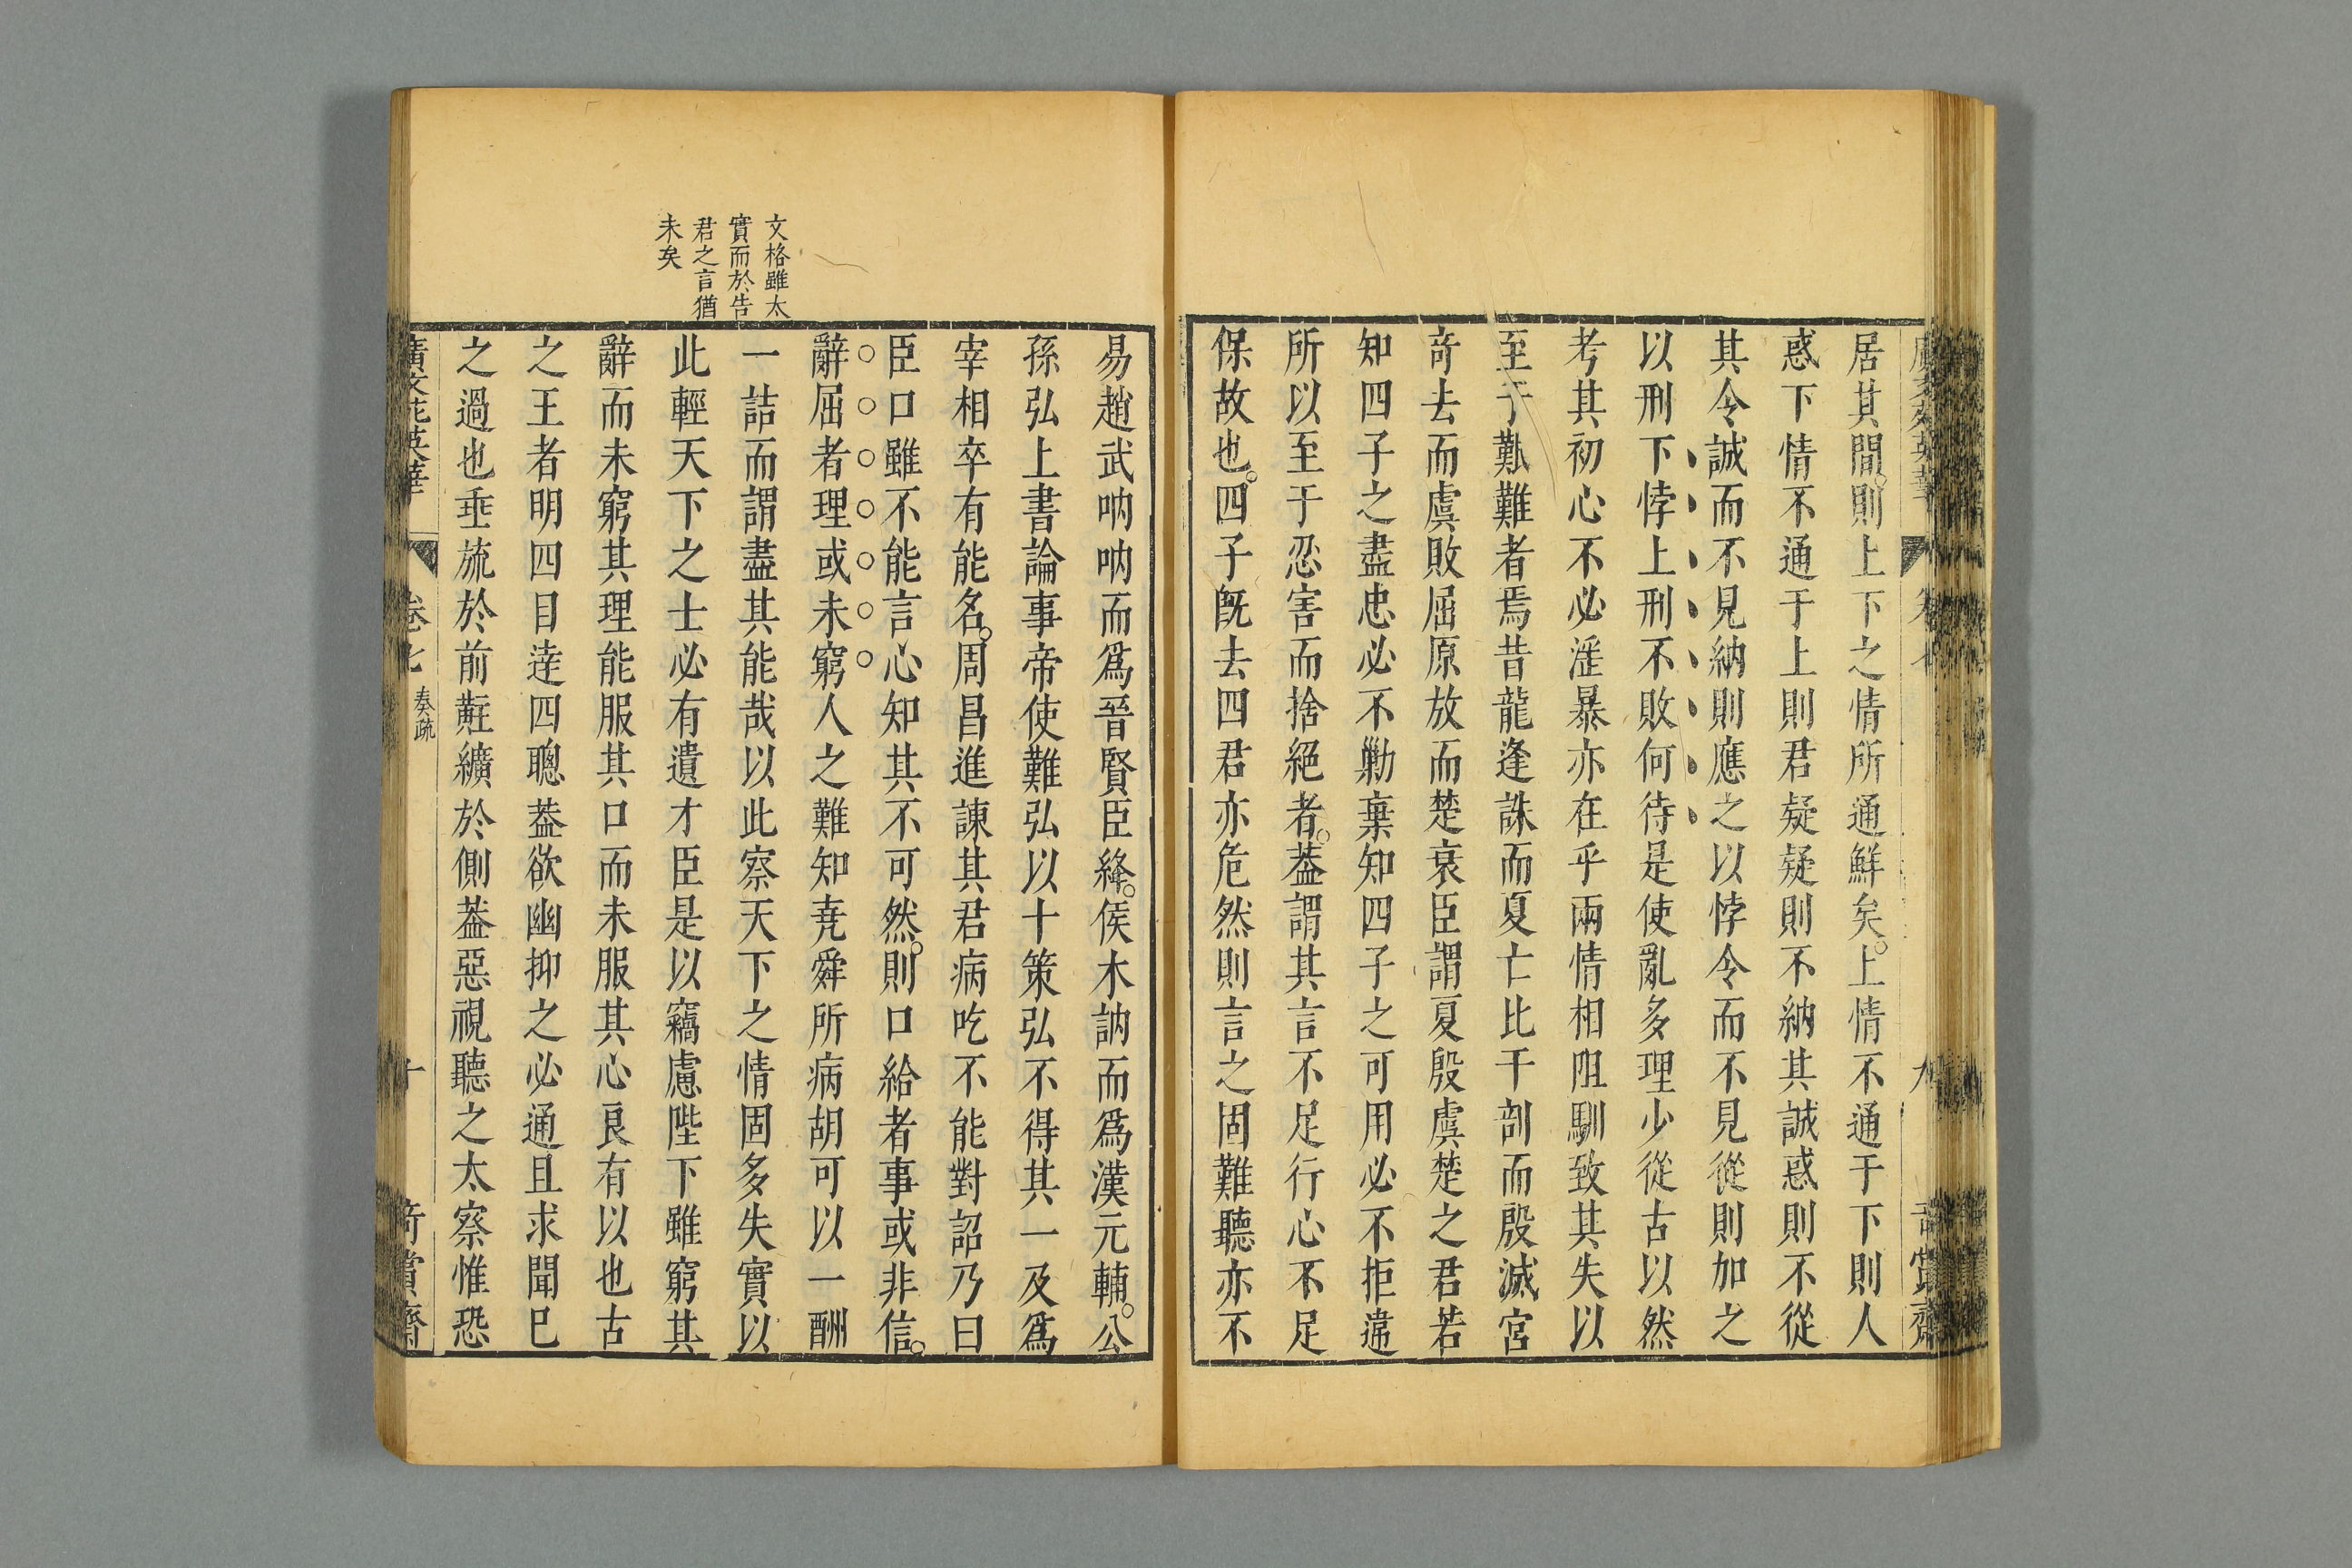 居其間則上下之情所通鮮矣上情不通于下則人
惑下情不通于上則君疑疑則不納其誠惑則不從
其令誠而不見納則應之以悖令而不見從則加之
以刑下悖上刑不敗何待是使亂多理少從古以然
考其初心不必滛暴亦在乎兩情相阻馴致其失以
至于艱難者焉昔龍逢誅而夏亡比干剖而殷滅宮
竒去而虞敗屈原放而楚衰臣謂夏殷虞楚之君若
知四子之盡忠必不勦棄知四子之可用必不拒違
所以至于忍害而捨絕者葢謂其言不足行心不足
保故也四子旣去四君亦危然則言之固難聽亦不
文格雖太
實而於告
君之言猶
未矣
易趙武吶吶而爲晉賢臣絳侯木訥而爲漢元輔公
孫弘上書論事帝使難弘以十策弘不得其一及爲
宰相卒有能名周昌進諫其君病吃不能對詔乃曰
臣口雖不能言心知其不可然則口給者事或非信
辭屈者理或未窮人之難知堯舜所病胡可以一酬
一詰而謂盡其能哉以此察天下之情固多失實以
此輕天下之士必有遺才臣是以竊慮陛下雖窮其
辭而未窮其理能服其口而未服其心良有以也古
之王者明四目達四聰葢欲幽抑之必通且求聞巳
之過也垂旒於前黈纊於側葢惡視聽之太察惟恐
廣文苑英華 卷七 奏疏 十 奇賞齋